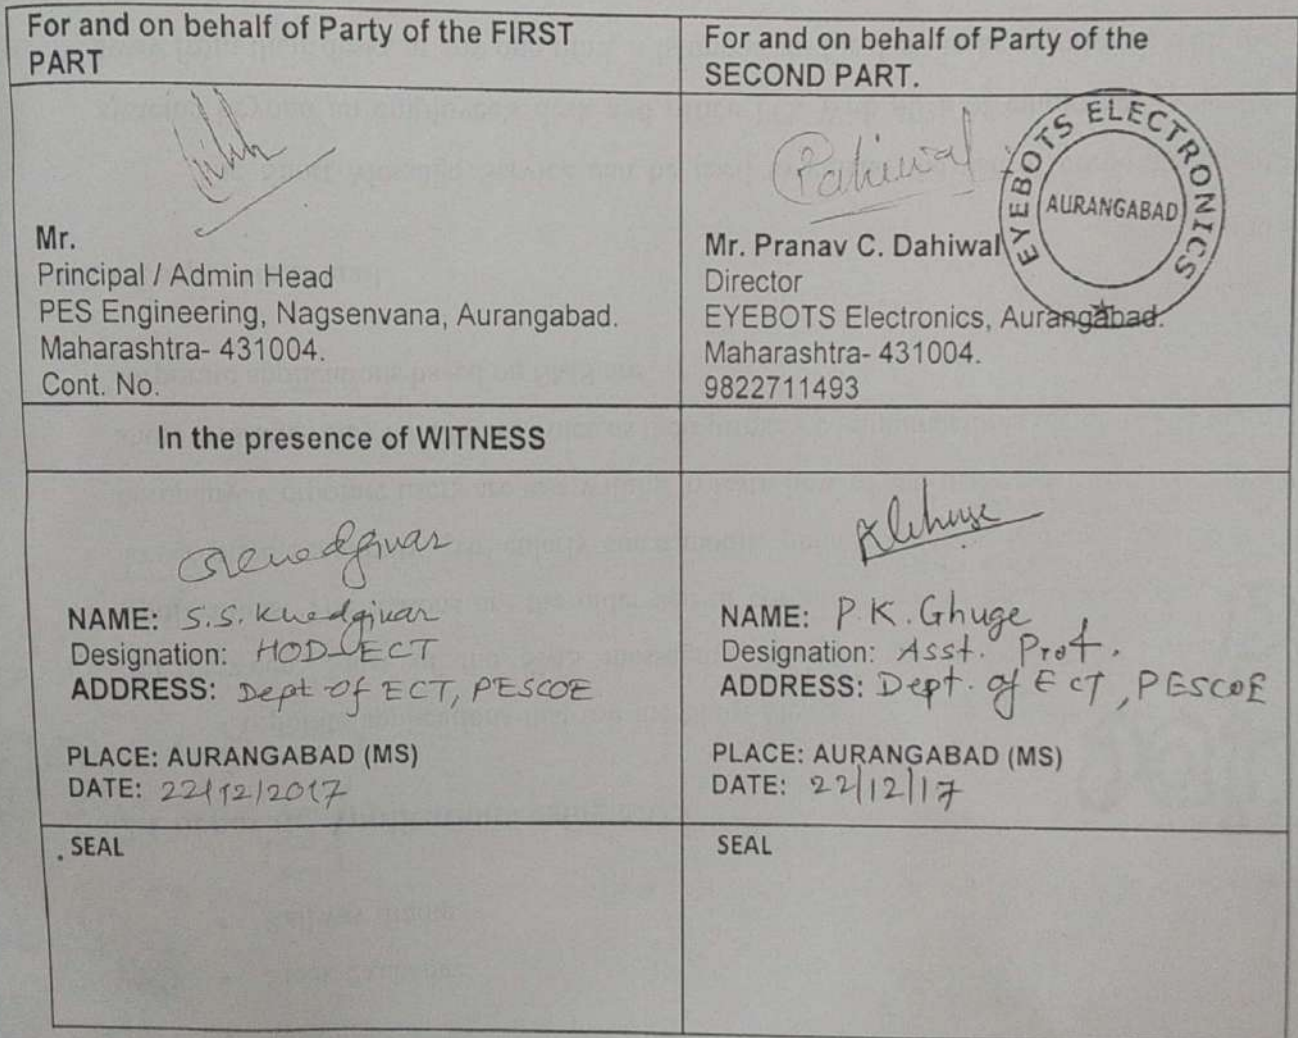 For and on behalf of Party of the FIRST
PART
Mr.
Principal / Admin Head
PES Engineering, Nagsenvana, Aurangabad.
Maharashtra- 431004.
Cont. No.
For and on behalf of Party of the
SECOND PART.
Dahiwal
EYEBOTS ELECTRONICS
AURANGABAD
Mr. Pranav C. Dahiwal
Director
EYEBOTS Electronics, Aurangabad.
Maharashtra- 431004.
9822711493
In the presence of WITNESS
NAME: S.S. Khedgikar
Designation: HOD-ECT
ADDRESS: Dept of ECT, PESCOE
PLACE: AURANGABAD (MS)
DATE: 22/12/2017
NAME: P.K. Ghuge
Designation: Asst. Prof.
ADDRESS: Dept. of ECT, PESCOE
PLACE: AURANGABAD (MS)
DATE: 22/12/17
. SEAL
SEAL